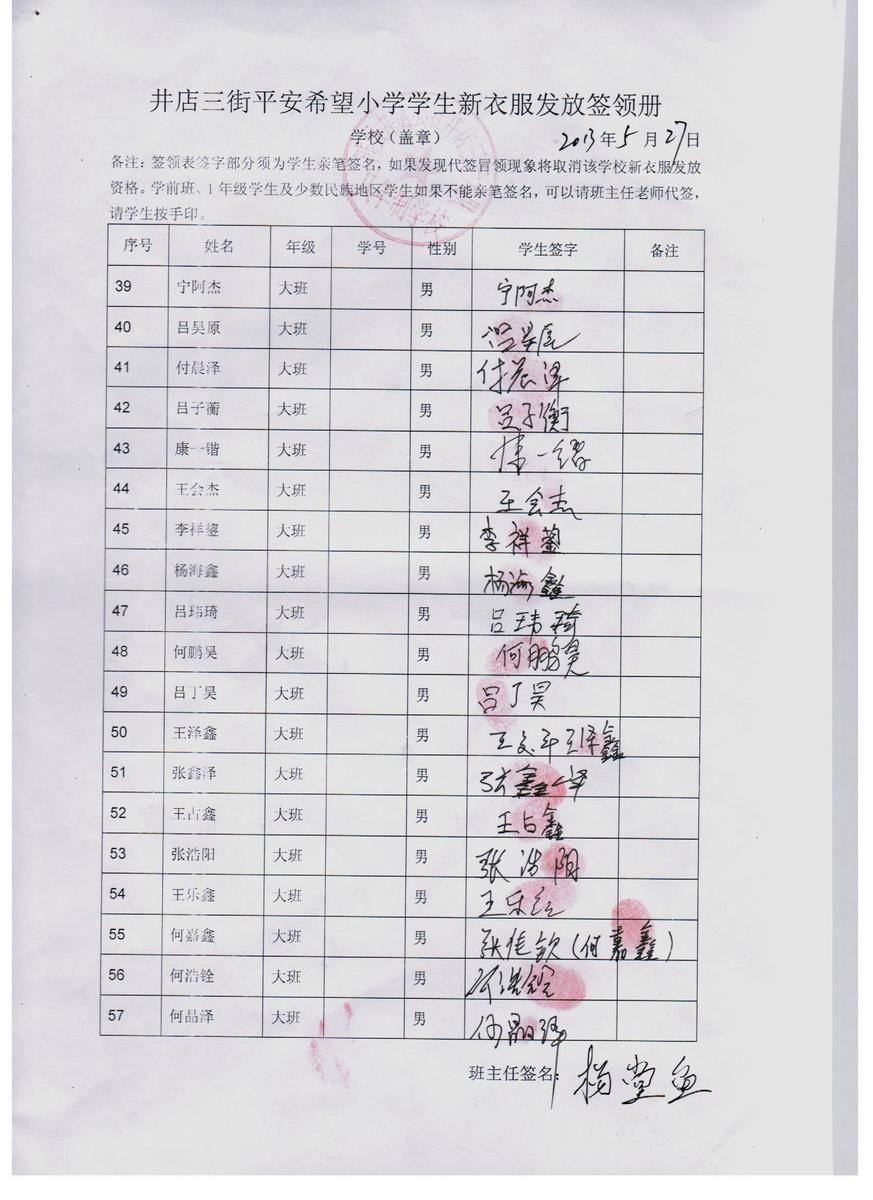 井店三街平安希望小学学生新衣服发放签领册
学校（盖章） 2013年5月27日
备注：签领表签字部分须为学生亲笔签名，如果发现代签冒领现象将取消该学校新衣服发放
资格。学前班、1年级学生及少数民族地区学生如果不能亲笔签名，可以请班主任老师代签，
请学生按手印。
序号 姓名 年级 学号 性别 学生签字 备注
39 宁阿杰 大班 男 宁阿杰
40 吕昊原 大班 男
41 付晨泽 大班 男 付晨泽
42 吕子蘅 大班 男 吕子衡
43 康一锴 大班 男 康一
44 王会杰 大班 男 王会杰
45 李祥鋆 大班 男 李祥
46 杨海鑫 大班 男 杨海鑫
47 吕玮琦 大班 男 吕玮琦
48 何鹏昊 大班 男 何鹏昊
49 吕丁昊 大班 男 吕丁昊
50 王泽鑫 大班 男 王泽鑫
51 张鑫泽 大班 男 张鑫泽
52 王占鑫 大班 男 王占鑫
53 张浩阳 大班 男 张浩阳
54 王乐鑫 大班 男 王乐
55 何嘉鑫 大班 男 张佳钦（何嘉鑫）
56 何浩铨 大班 男 何浩铨
57 何晶泽 大班 男 何晶泽
班主任签名：杨堂鱼